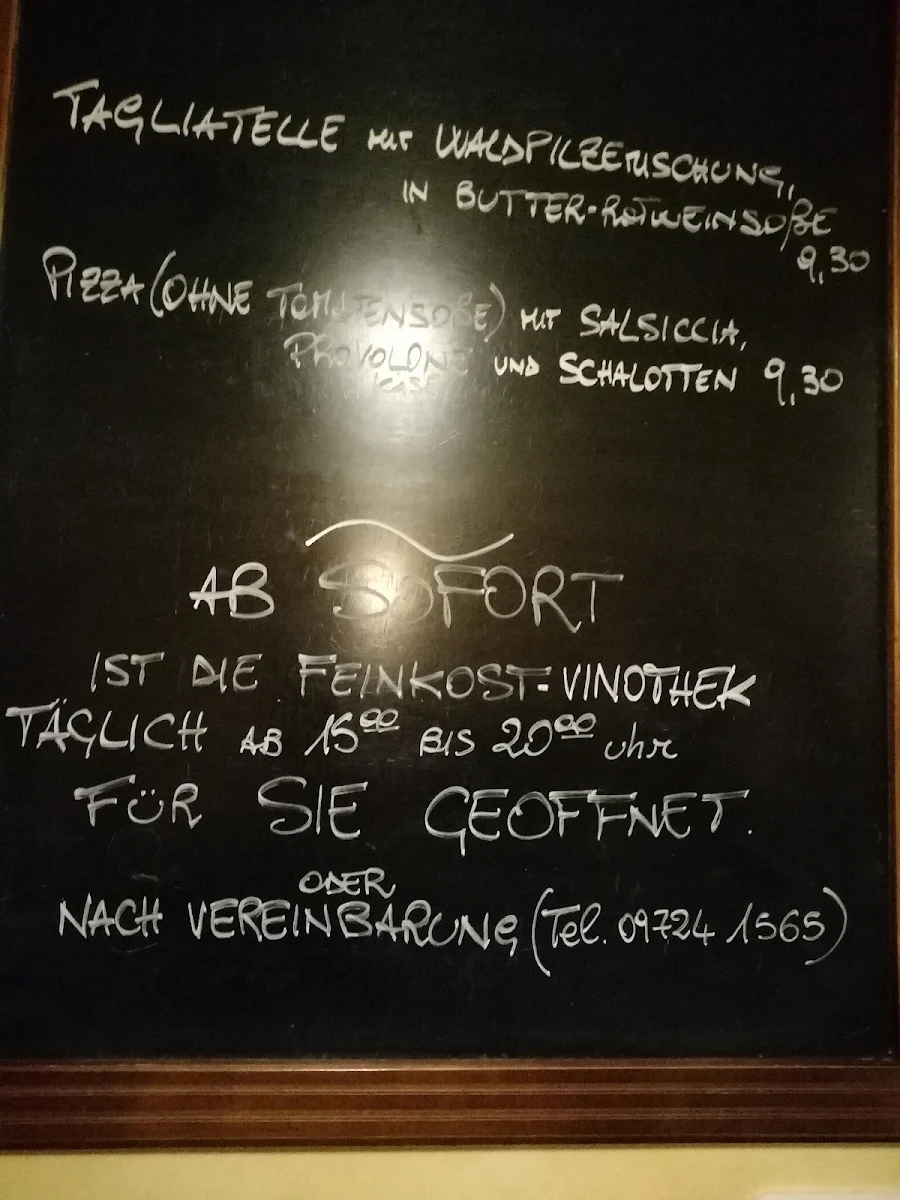 TAGLIATELLE MIT WALDPILZEMISCHUNG,
IN BUTTER-ROTWEINSOßE
9,30
PIZZA (OHNE TOMATENSOßE) MIT SALSICCIA,
PROVOLONE UND SCHALOTTEN 9,30
AB SOFORT
IST DIE FEINKOST-VINOTHEK
TÄGLICH AB 15⁰⁰ BIS 20⁰⁰ Uhr
FÜR SIE GEÖFFNET.
ODER
NACH VEREINBARUNG (Tel. 09724 1565)